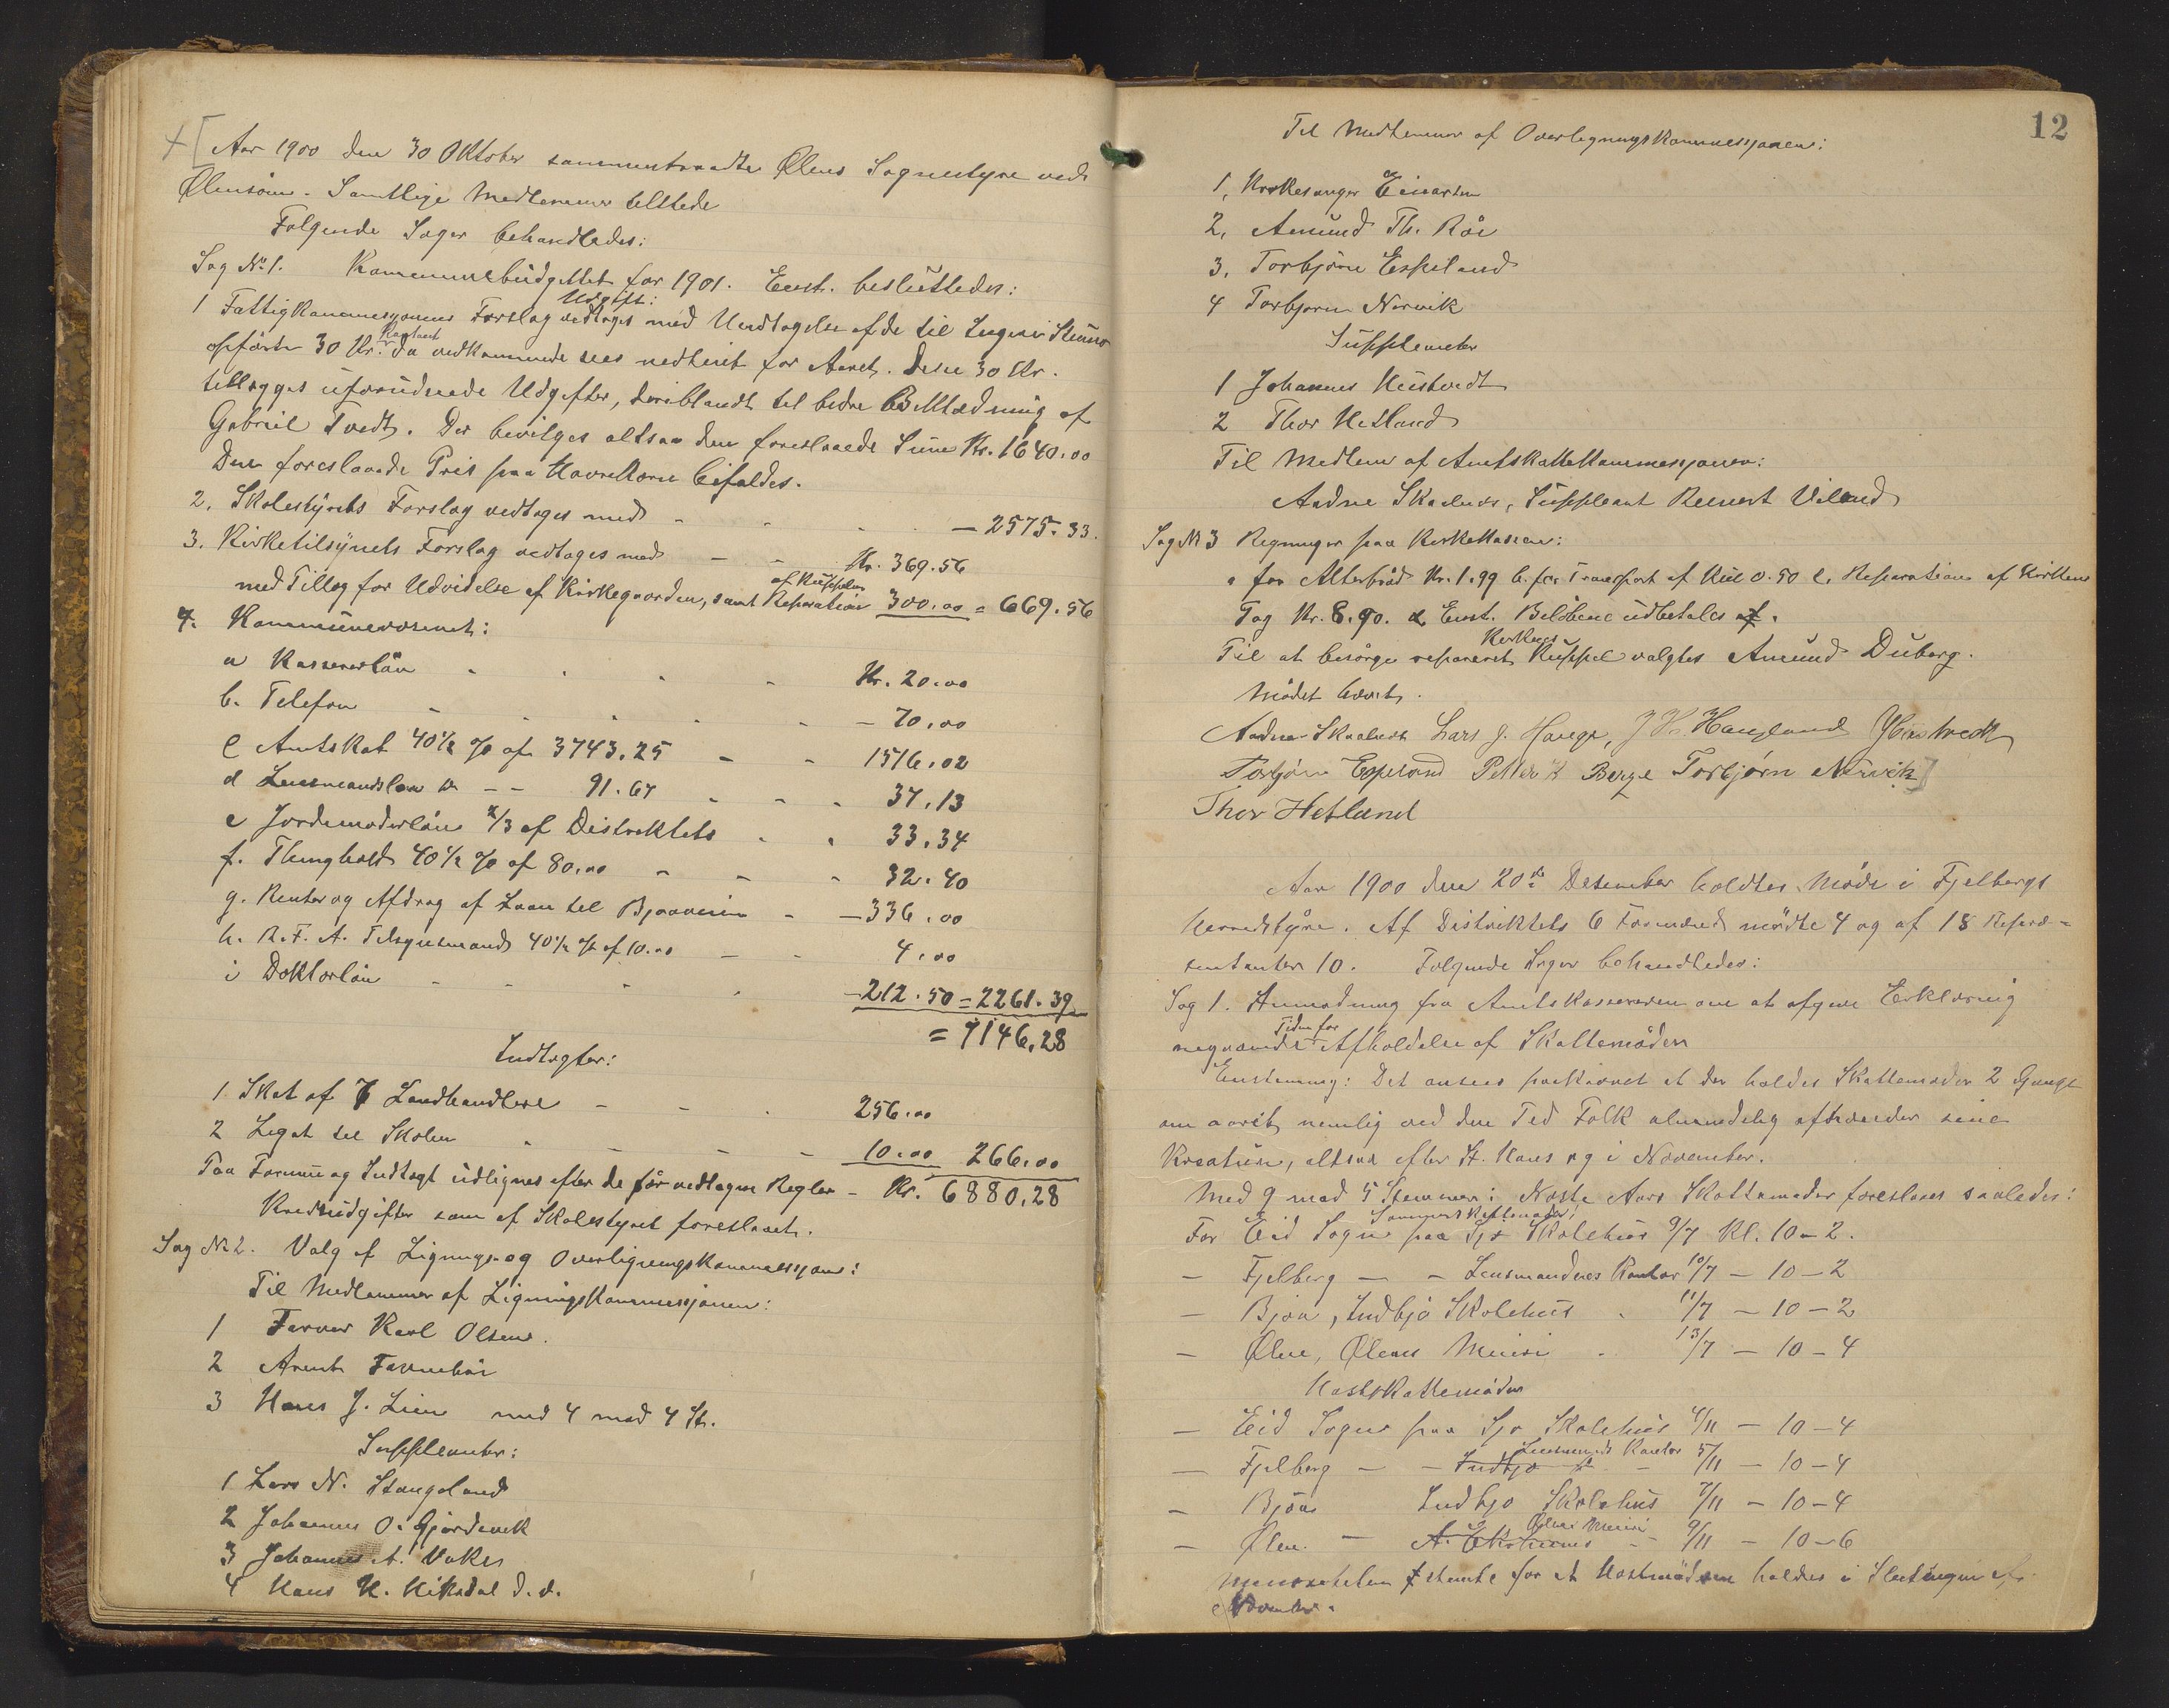 Aar 1900 den 30 Oktober sammentraadte Ølens Sognestyre ved
Ølensøen. Samtlige Medlemmer tilstede
Følgende Sager behandledes:
Sag № 1. Kommunebudgettet for 1901. Enst. besluttedes:
Udgift:
1 Fattigkommissjonens Forslag vedtages med Undtagelse af de til
opførte 30 Kr. da vedkommende sees for Aaret. Disse 30 Kr.
tillægges uforudseede Udgifter, deriblandt til bedre Beklædning af
Gabriel Tvedt. Der bevilges altsaa den foreslaaede Sum Kr. 1640.00
Den foreslaaede Pris paa Havrekorn bifaldes.
2. Skolestyrets Forslag vedtages med - - - - 2575.33.
3. Kirketilsynets Forslag vedtages med - - Kr. 369.56
med Tillæg for Udvidelse af Kirkegaarden, samt Reparation af Kuppelen 300.00 = 669.56
4. Kommunevæsenet:
a Kassererløn - - - - Kr. 20.00
b. Telefon - - - - - 70.00
c Amtskat 40½ % af 3743.25 - - 1516.02
d Lensmandsløn - - 91.67 - - - 37.13
e Jordemoderløn ⅔ af Distriktets - - 33.34
f. Thinghold 40½ % af 80.00 - - - 32.40
g. Renter og Afdrag af Laan til Bjoaveien - - 336.00
h. R.F.A. Tilsynsmand 40½ % af 10.00 - - 4.00
i Doktorløn - - - - - 212.50 = 2261.39
= 7146.28
Indtægter:
1 Skat af 7 Landhandlere - - - 256.00
2 Legat til Skolen - - - - 10.00 266.00
Paa Formue og Indtægt udlignes efter de før vedtagne Regler - Kr. 6880.28
Kredsudgifter som af Skolestyret foreslaaet.
Sag № 2. Valg af Lignings- og Overligningskommissjon:
Til Medlemmer af Ligningskommissjonen:
1 Farver Karl Olsen.
2 Arent
3 Hans J. Lien med 4 mod 4 St.
Suppleanter:
1 Lars N. Stangeland
2 Johannes O. Gjærdevik
3 Johannes A. Vake
4 Hans H. Kiksdal d.y.
12
Til Medlemmer af Overligningskommissjonen:
1, Kirkesanger Einarsen
2, Amund Th. Røe
3, Torbjørn Espeland
4 Torbjørn Nervik
Suppleanter
1 Johannes Hustvedt
2 Thor Hetland
Til Medlem af Amtskattekommissjonen:
Aadne Skaaluer, Suppleant Reinert Viland
Sag № 3 Regninger paa Kirkekassen:
a for Alterbrød Kr. 1.99 b. for Transport af Kul 0.50 c. Reparation af Kirkens
Tag Kr. 8.90. Enst. Beløbene udbetales.
Til at besørge repareret Kirkens Kuppel valgtes Amund Duborg.
Mødet hævet.
Aadne Skaaluer Lars J. Hauge, J H. Haugland J Hustvedt
Torbjørn Espeland Petter K Berge Torbjørn Nervik
Thor Hetland
Aar 1900 den 20de Desember holdtes Møde i Fjelbergs
Herredstyre. Af Distriktets 6 Formænd mødte 4 og af 18 Repræ-
sentanter 10. Følgende Sager behandledes:
Sag 1. Anmodning fra Amtskassereren om at afgive Erklæring
angaaende Tiden for Afholdelse af Skattemøder
Enstemmig: Det ansees paakrævet at der holdes Skattemøder 2 Gange
om aaret, nemlig ved den Tid Folk almindelig afhænder sine
Kreaturer, altsaa efter St. Hans og i November.
Med 9 mod 5 Stemmer: Næste Aars Skattemøder foreslaaes saaledes:
Sommerskattemøder:
For Eid Sogn paa Sjo Skolehus 9/7 Kl. 10-2.
- Fjelberg - - Lensmandens Kontor 10/7 - 10-2
- Bjoa, Indbjo Skolehus - 11/7 - 10-2
- Ølen, Ølens Meieri - 13/7 - 10-4
Høstskattemøder
- Eid Sogn paa Sjo Skolehus 4/11 - 10-4
- Fjelberg - - Indbjo Lensmands Kontor 5/11 - 10-4
- Bjoa Indbjo Skolehus 7/11 - 10-4
- Ølen - Ølens Meieri 9/11 - 10-6
stemte for at Høstmøderne holdes i Slutningen af
November.